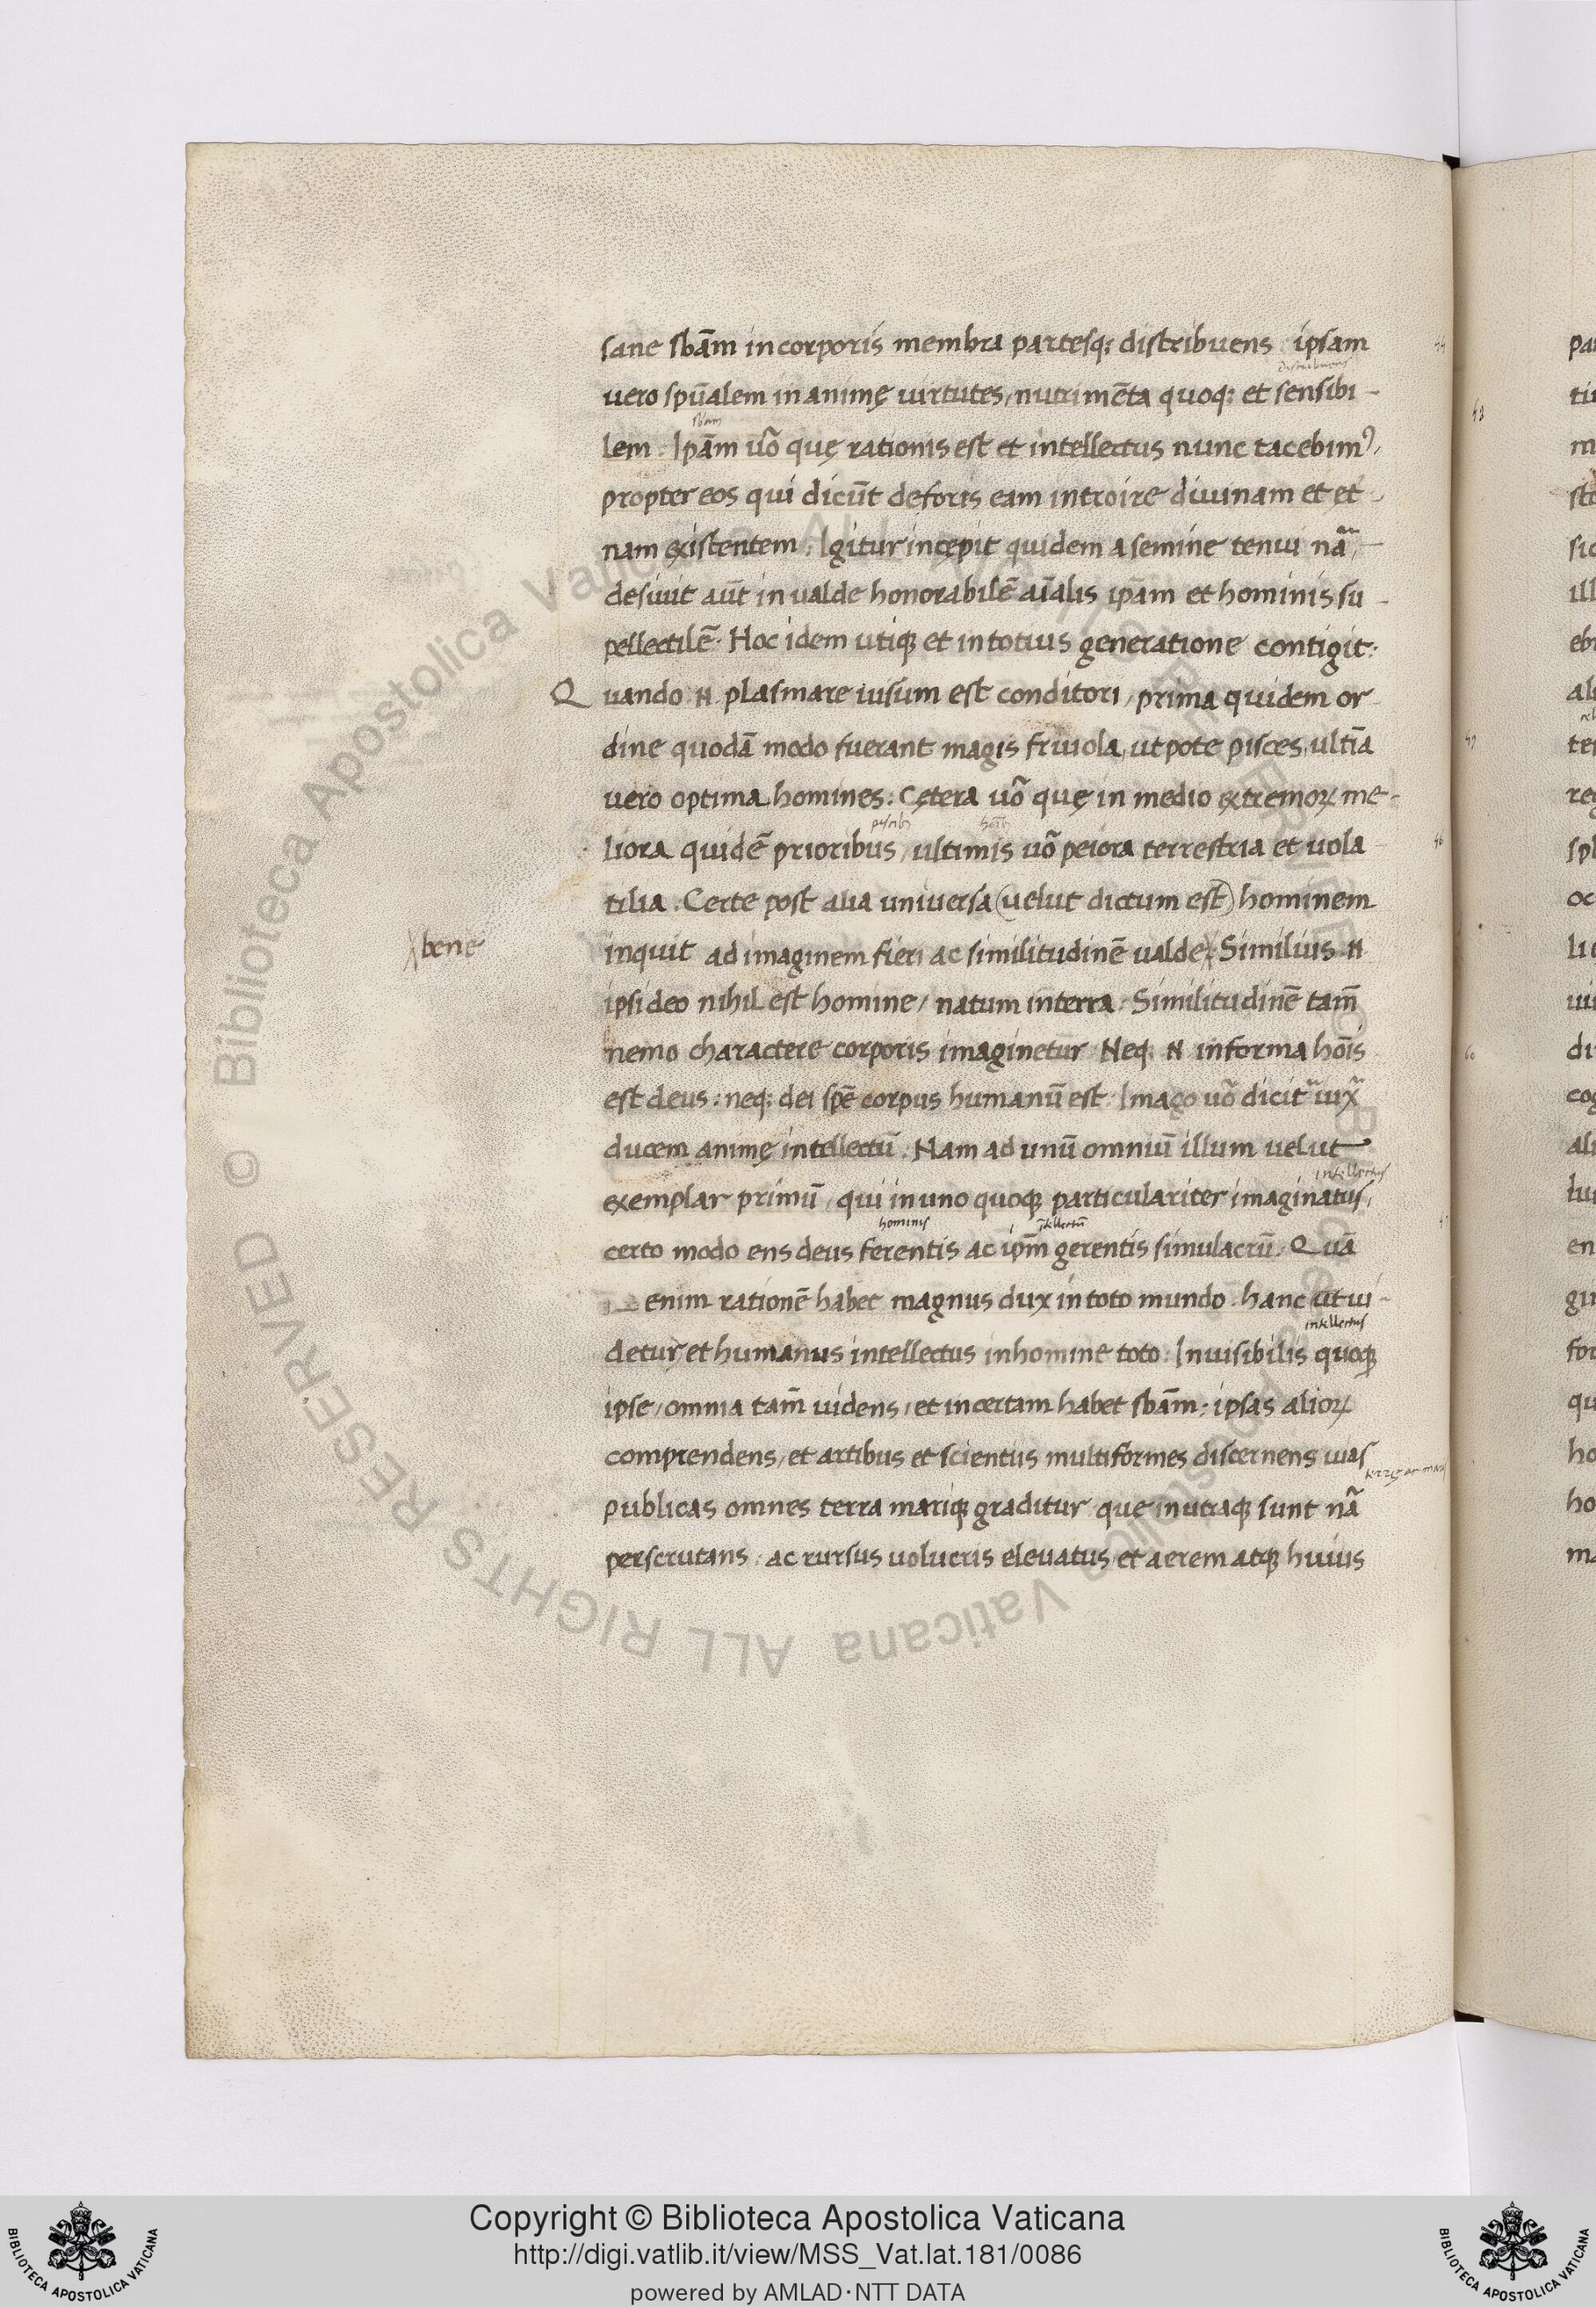 sane sbãm in corporis membra partesq; distribuens ipsam
distribuens
vero spũalem in animę virtutes, nutrimẽta quoq; et sensibi-
sbam
lem. Ipãm uõ quę rationis est et intellectus nunc tacebimꝰ,
propter eos qui dicũt deforis eam introire diuinam et et-
nam existentem. Igitur incępit quidem a semine tenui nã,
desiuit aũt in valde honorabilẽ aĩalis ipãm et hominis su-
pellectilẽ. Hoc idem utiqꝫ et in totius generatione contigit.
Quando .N. plasmare iusum est conditori, prima quidem or
dine quodã modo fuerant magis friuola, ut pote pisces, ultĩa
vero optima homines: Cętera uõ quę in medio extremoꝝ me-
liora quidẽ prioribus, ultimis uõ peiora terrestria et uola
tilia. Certe post alia universa (velut dictum est) hominem
bene
inquit ad imaginem fieri ac similitudinẽ valde. Similius .N.
ipsi deo nihil est homine, natum in terra. Similitudinẽ tam̃
nemo charactere corporis imaginetur. Neq; .N. in forma hoĩs
est deus: neq; dei spẽ corpus humanũ est. Imago uõ dicit̃ iux̃
ducem animę intellectũ. Nam ad unũ omniũ illum velut
intellectus
exemplar primũ, qui in uno quoqꝫ particulariter imaginatus,
hominis ĩtellectũ
certo modo ens deus ferentis ac ip̃m gerentis simulacrũ. Quã
enim rationẽ habet magnus dux in toto mundo. hanc ut ui-
intellectus
detur, et humanus intellectus in homine toto. Invisibilis quoqꝫ
ipse, omnia tam̃ uidens, et incertam habet sbãm: ipsas alioꝝ
comprendens, et artibus et scientiis multiformes discernens uias
publicas omnes terra mariqꝫ graditur que in utraqꝫ sunt nã
perscrutans. ac rursus volucris elevatus, et aerem atqꝫ huius
Copyright © Biblioteca Apostolica Vaticana
http://digi.vatlib.it/view/MSS_Vat.lat.181/0086
powered by AMLAD·NTT DATA
BIBLIOTECA APOSTOLICA VATICANA
BIBLIOTECA APOSTOLICA VATICANA